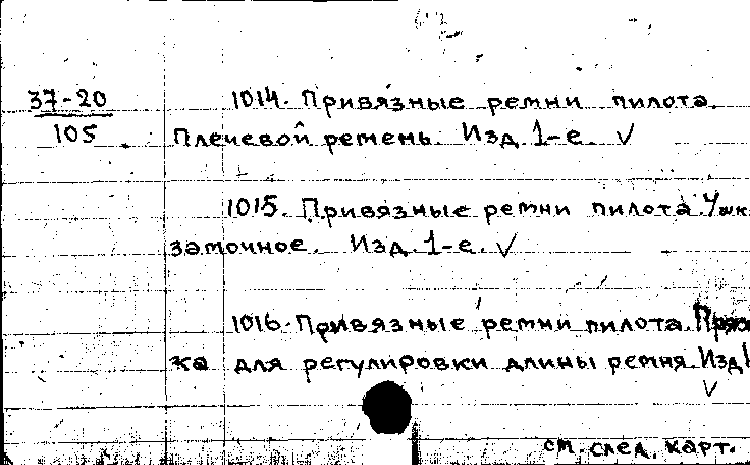 37-20
105
1014. Привязные ремни пилота.
Плечевой ремень. Изд. 1-е. ✓
1015. Привязные ремни пилота.
замочное. Изд. 1-е. ✓
1016. Привязные ремни пилота. Пряж
ка для регулировки длины ремня. Изд 1
✓
см. след. карт.